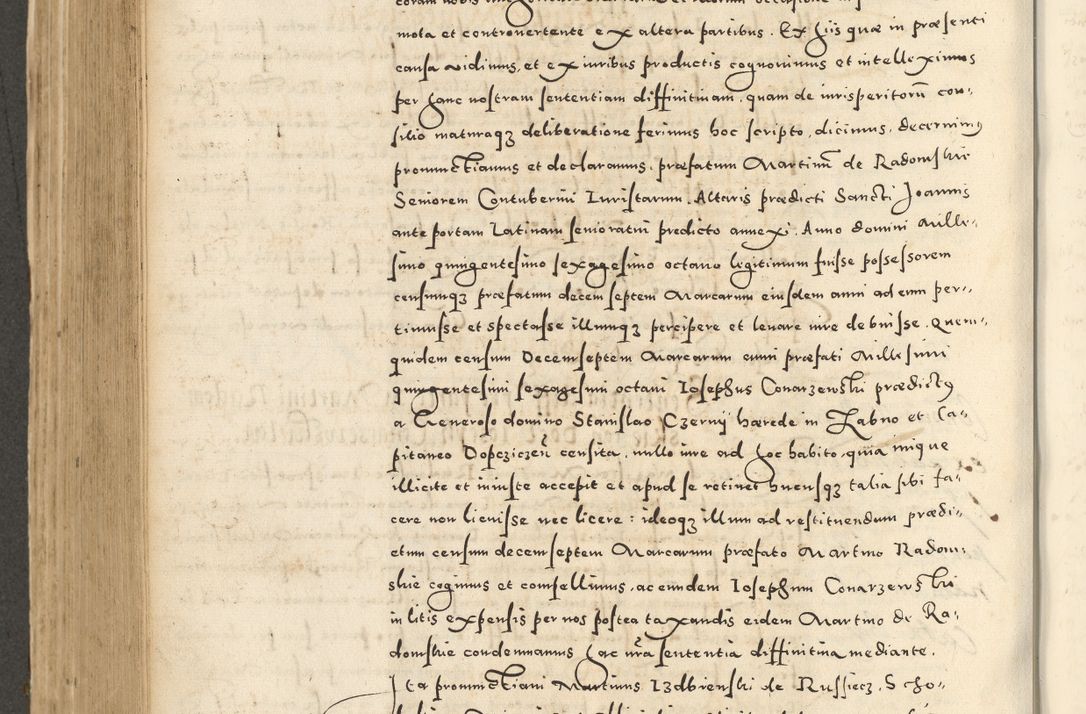 mota et controvertente ex altera partibus. Ex hiis quæ in præsenti
causa vidimus, et ex iuribus productis cognovimus et intelleximus
per hanc nostram sententiam diffinitivam, quam de iurisperitorū con-
silio maturaqꝫ deliberatione ferimus hoc scripto, dicimus, decernimꝰ
pronunctiamus et declaramus, præfatum Martinū de Radomskie
Seniorem Contubernii Iuristarum. Altaris prædicti Sancti Joannis
ante portam Latinam senioratui predicto annexi. Anno domini Mille-
simo quingentesimo sexagesimo octavo legitimum fuisse possessorem
censumqꝫ præfatum decem septem Marcarum eiusdem anni ad eum per-
tinuisse et spectasse illumqꝫ percipere et levare iure debuisse. Quem-
quidem censum Decemseptem Marcarum anni præfati Millesimi
quingentesimi sexagesimi octavi Iosephus Conarzewski prædictꝰ
a Generoso domino Stanislao Czernÿ hærede in Zabno et Ca-
pitaneo Dopcziczeñ censita, nullo iure ad hoc habito, quia inique
illicite et iniuste accepit et apud se retinet huiusqꝫ talia sibi fa-
cere non licuisse nec licere: ideoqꝫ illum ad restituendum prædi-
ctum censum decemseptem Marcarum præfato Martino Radom-
skie cogimus et compellimus, ac eundem Iosephum Conarzewski
in litis expensis per nos postea taxandis eidem Martino de Ra-
domskie condemnamus hac nr̃a sententia diffinitiva mediante.
Ita pronunctiavi Martinus Izdbienski de Russiecz, Scho-